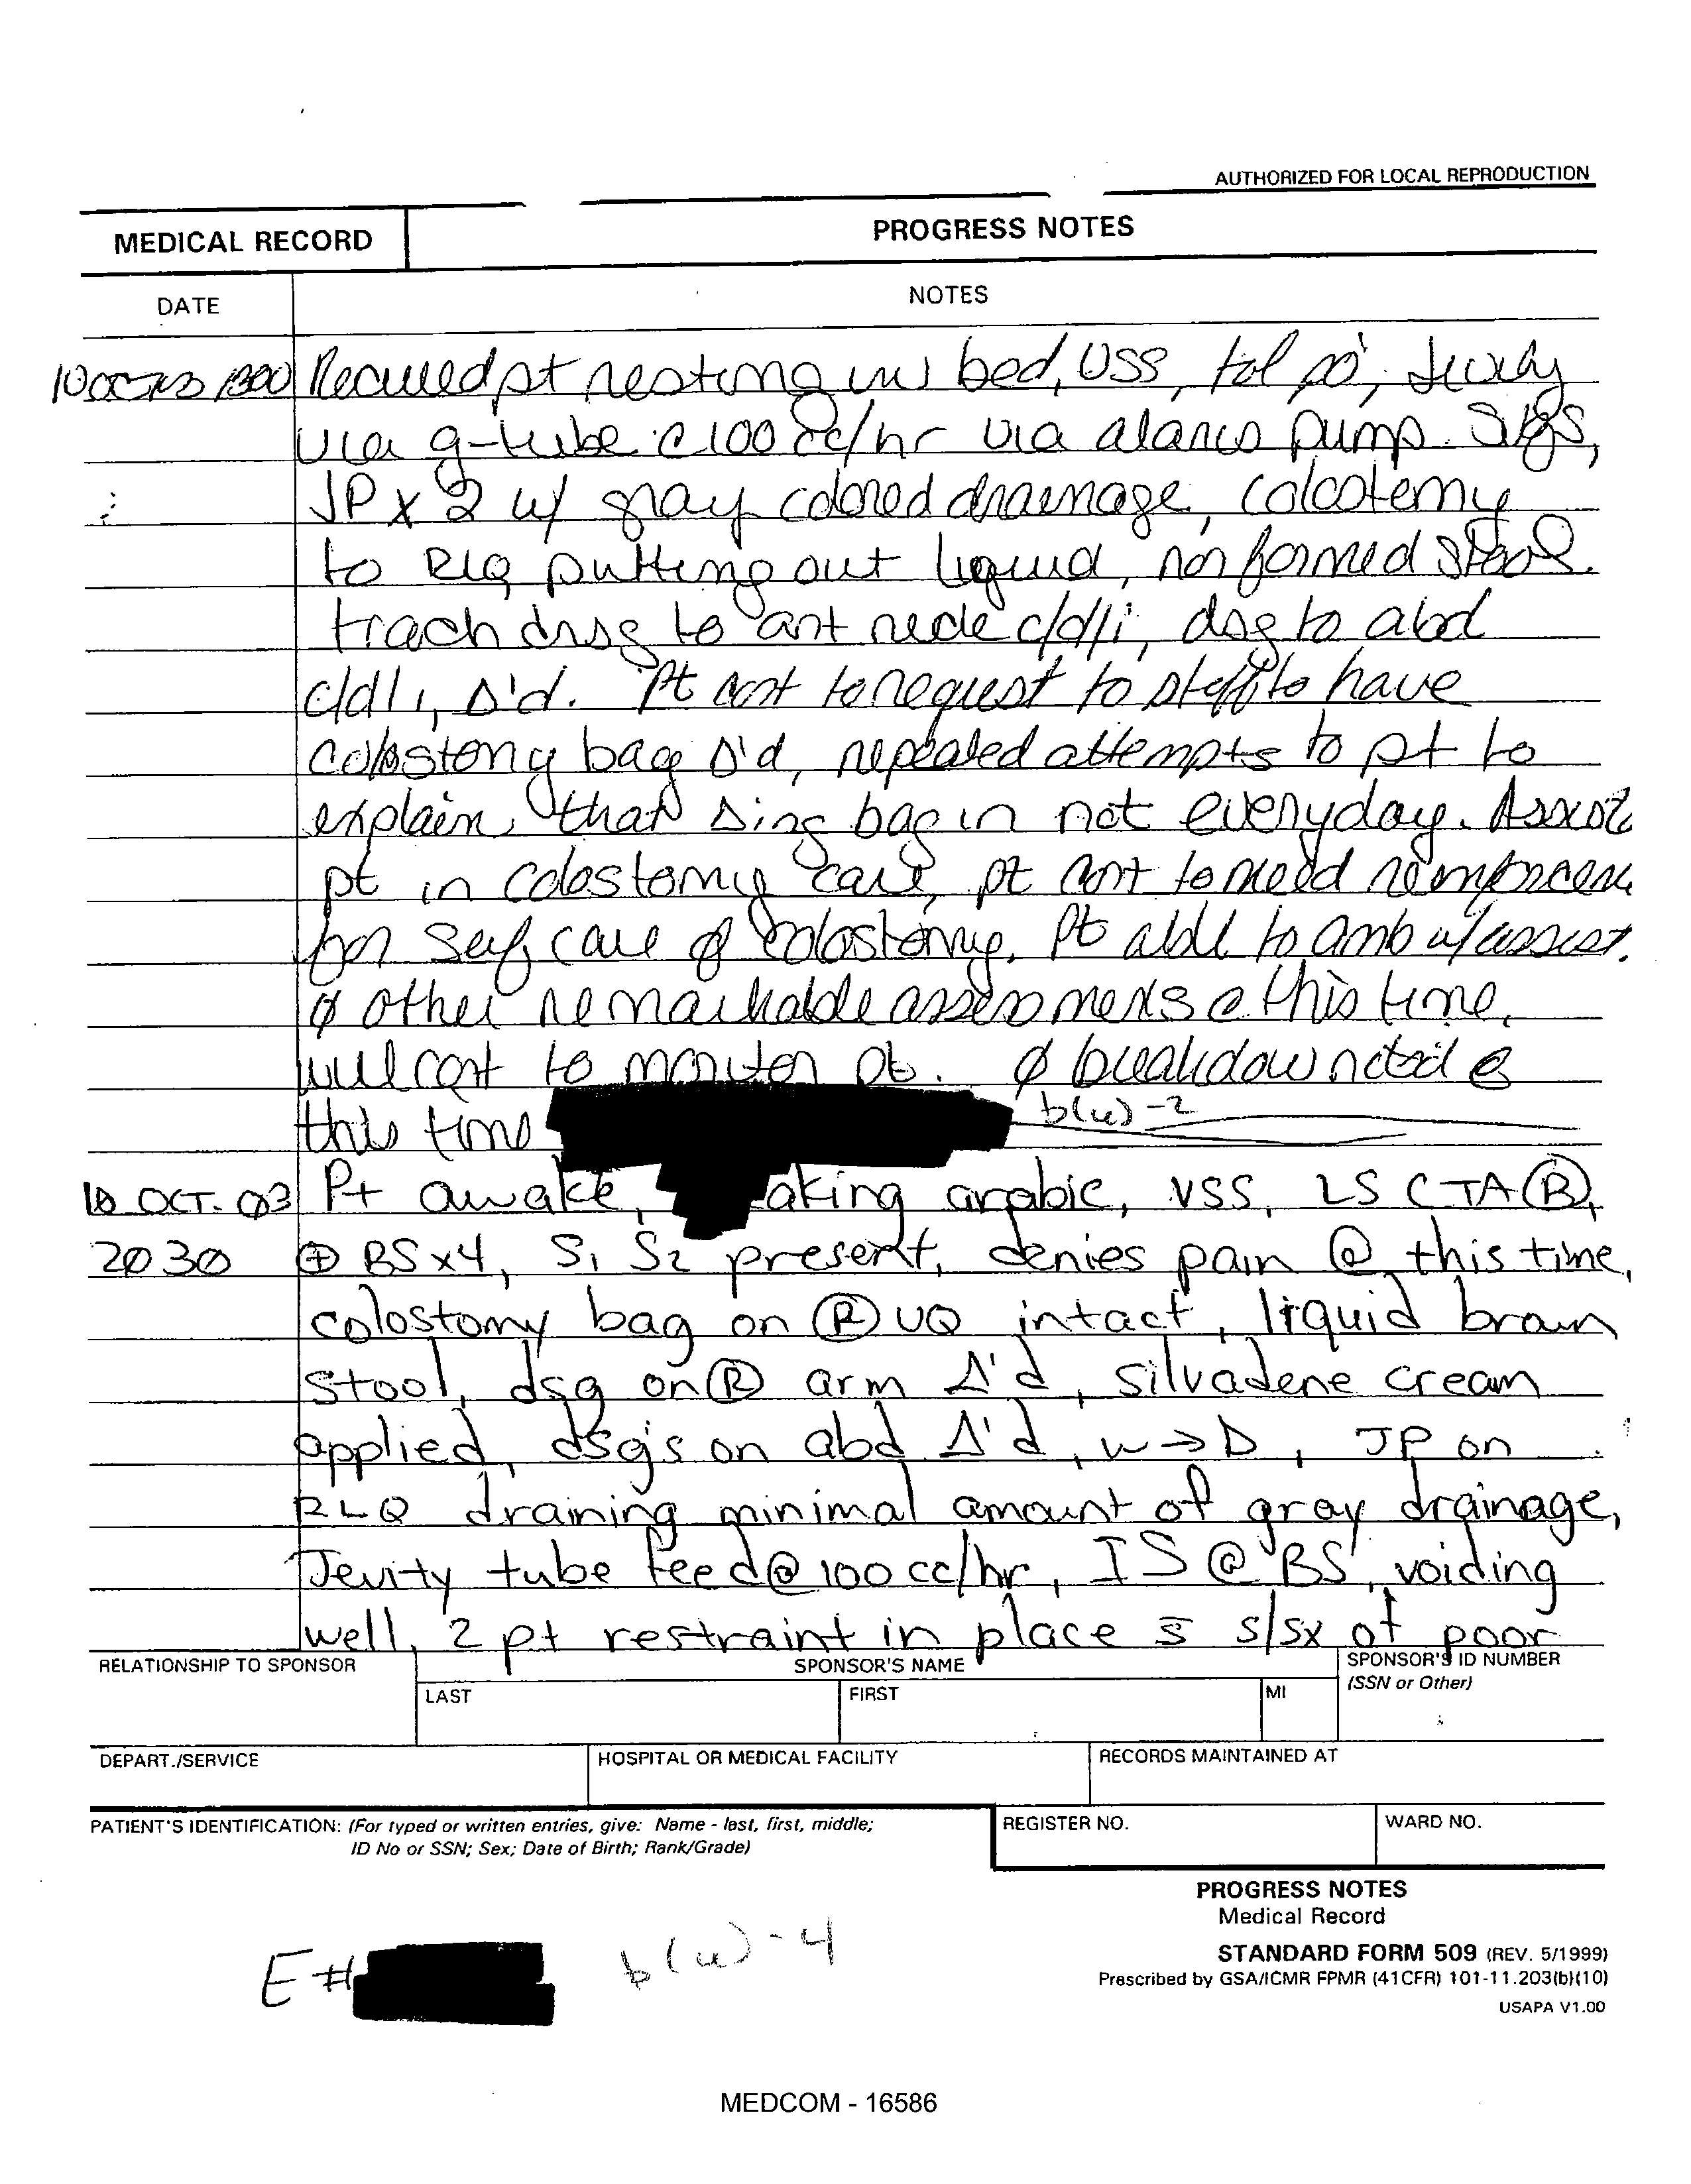 AUTHORIZED FOR LOCAL REPRODUCTION
MEDICAL RECORD
PROGRESS NOTES
DATE
NOTES
Received pt resting in bed, VSS, tol po, Jevity
via g-tube @ 100 cc/hr via alaris pump.
JP x 2 w/ gray colored drainage, colostemy
to RLQ putting out liquid, non formed stool.
trach drsg to ant neck c/d/i, dsg to abd
c/d/i, Δ'd. Pt cont to request to staff to have
colostomy bag Δ'd, repeated attempts to pt to
explain that Δing bag in not everyday. Assist
pt in colostomy care, pt cont to need
for self care of colostomy. Pt able to amb w/ assist.
∅ other remarkable assessments @ this time,
will cont to monitor pt. ∅ breakdown noted @
this time b(6)-2
10 OCT. 03 Pt awake, aking arabic, VSS, LS CTA Ⓑ,
2030 ⊕ BSx4, S1 S2 present, denies pain @ this time,
colostomy bag on Ⓡ UQ intact, liquid brown
stool, dsg on Ⓡ arm Δ'd, silvadene cream
applied, dsg's on abd Δ'd, w→D, JP on
RLQ draining minimal amount of gray drainage,
Jevity tube feed @ 100 cc/hr, IS @ BS, voiding
well, 2 pt restraint in place s̄ s/sx of poor
RELATIONSHIP TO SPONSOR
SPONSOR'S NAME
SPONSOR'S ID NUMBER
(SSN or Other)
LAST
FIRST
MI
DEPART./SERVICE
HOSPITAL OR MEDICAL FACILITY
RECORDS MAINTAINED AT
PATIENT'S IDENTIFICATION: (For typed or written entries, give: Name - last, first, middle;
ID No or SSN; Sex; Date of Birth; Rank/Grade)
REGISTER NO.
WARD NO.
PROGRESS NOTES
Medical Record
STANDARD FORM 509 (REV. 5/1999)
Prescribed by GSA/ICMR FPMR (41CFR) 101-11.203(b)(10)
USAPA V1.00
E# b(6)-4
MEDCOM - 16586